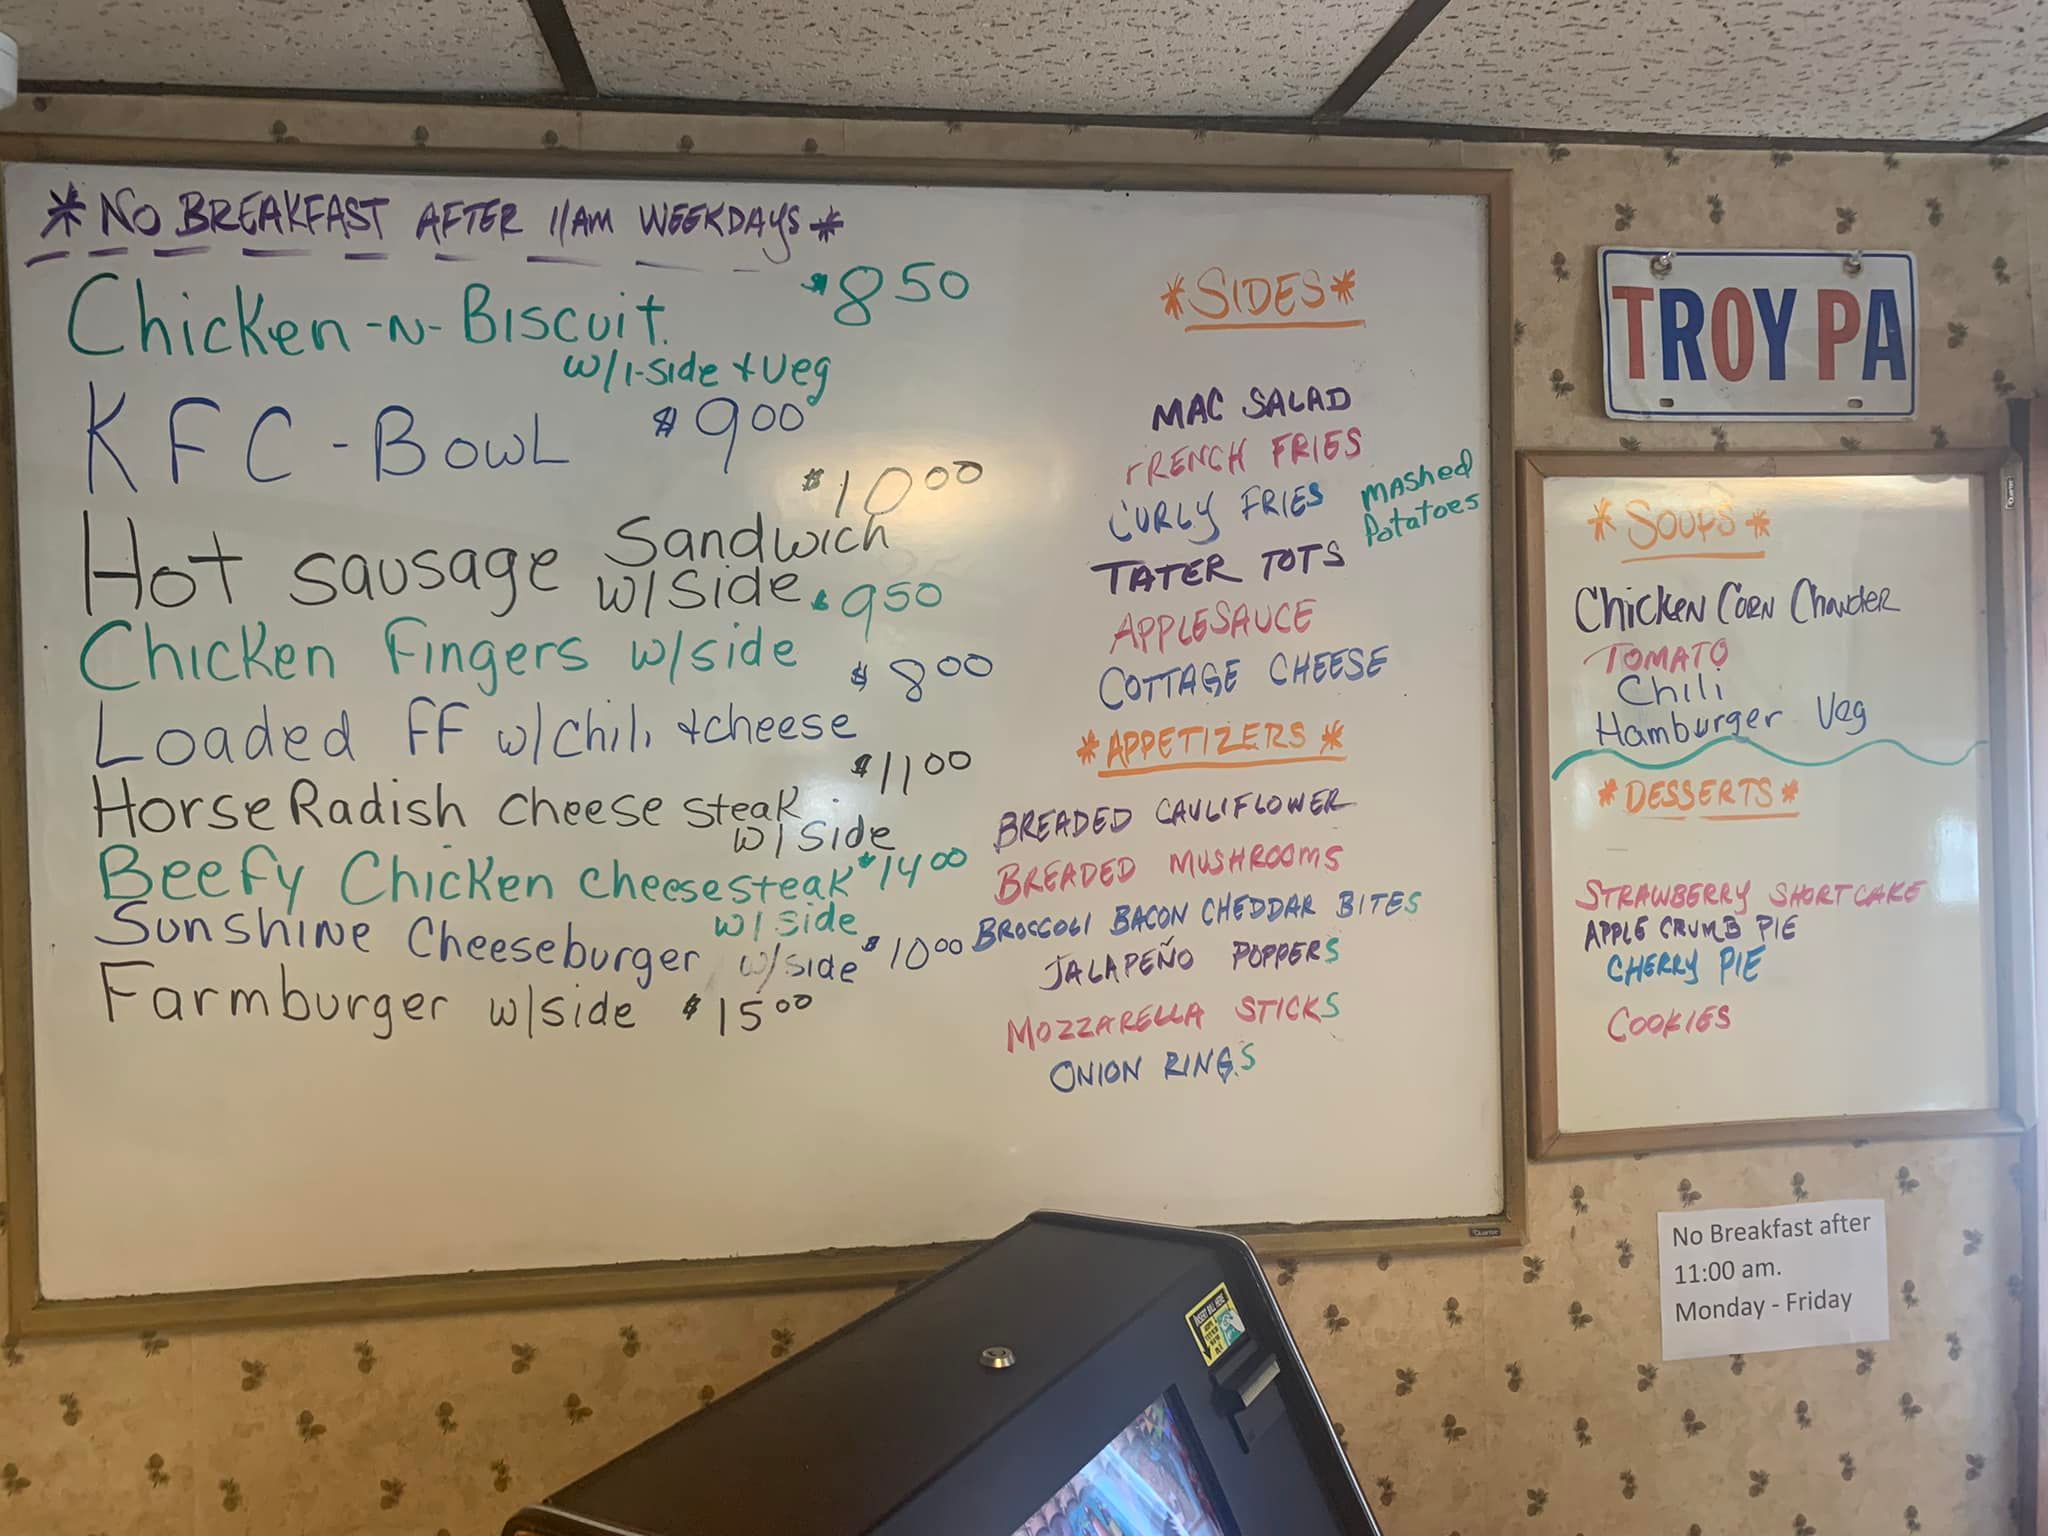 *NO BREAKFAST AFTER 11AM WEEKDAYS*
Chicken-N-Biscuit $8.50
w/1-side + veg
KFC-Bowl $9.00
$10.00
Hot sausage Sandwich
w/side
Chicken Fingers w/side $9.50
Loaded FF w/chili + cheese $8.00
HorseRadish cheese steak $11.00
w/side
Beefy Chicken cheesesteak $14.00
w/side
Sunshine Cheeseburger w/side $10.00
Farmburger w/side $15.00
*SIDES*
MAC SALAD
FRENCH FRIES
CURLY FRIES
MASHED
Potatoes
TATER TOTS
APPLESAUCE
COTTAGE CHEESE
*APPETIZERS*
BREADED CAULIFLOWER
BREADED MUSHROOMS
BROCCOLI BACON CHEDDAR BITES
JALAPEÑO POPPERS
MOZZARELLA STICKS
ONION RINGS
TROY PA
*SOUPS*
Chicken Corn Chowder
TOMATO
Chili
Hamburger Veg
*DESSERTS*
STRAWBERRY SHORTCAKE
APPLE CRUMB PIE
CHERRY PIE
COOKIES
No Breakfast after
11:00 am.
Monday - Friday
INSERT BILL HERE